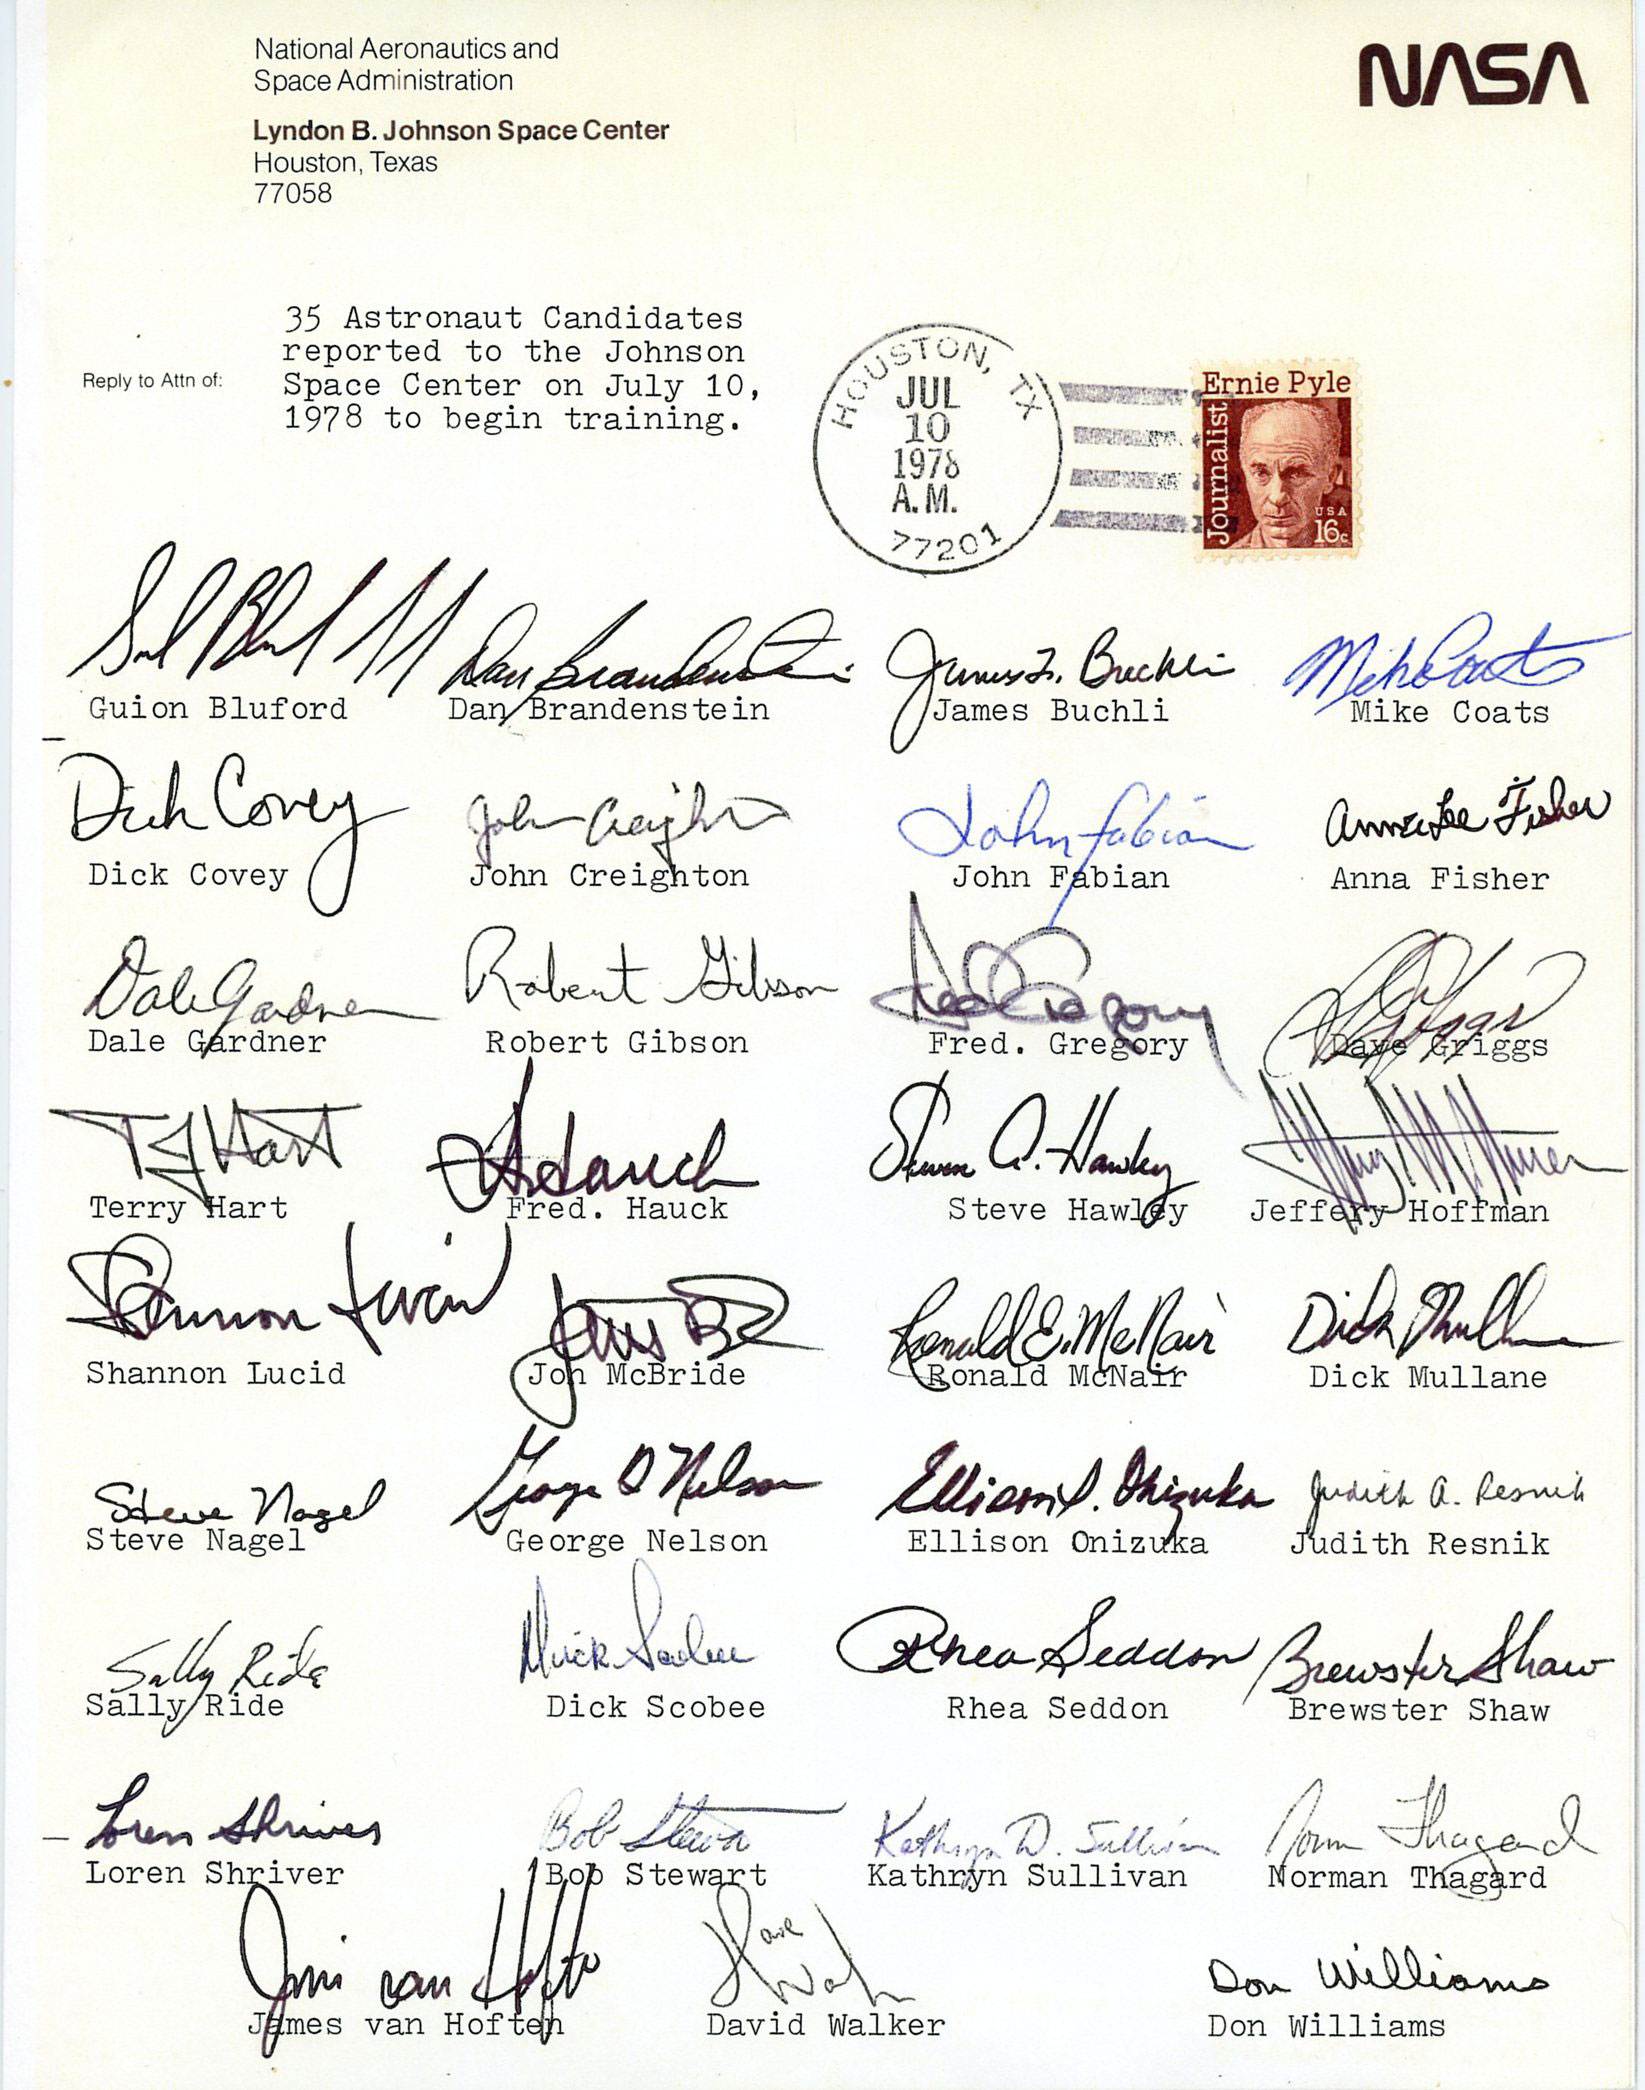 National Aeronautics and
Space Administration
Lyndon B. Johnson Space Center
Houston, Texas
77058
NASA
Reply to Attn of:
35 Astronaut Candidates
reported to the Johnson
Space Center on July 10,
1978 to begin training.
HOUSTON, TX
JUL
10
1978
A.M.
77201
Ernie Pyle
Journalist
USA
16c
Dan Brandenstein James F. Buchli Mike Coats
Guion Bluford Dan Brandenstein James Buchli Mike Coats
Dick Covey John Creighton John Fabian Anna Lee Fisher
Dick Covey John Creighton John Fabian Anna Fisher
Dale Gardner Robert Gibson Fred Gregory
Dale Gardner Robert Gibson Fred. Gregory Dave Griggs
TJ Hart Steven A. Hawley
Terry Hart Fred. Hauck Steve Hawley Jeffery Hoffman
Shannon Lucid Ronald E. McNair Dick Mullane
Shannon Lucid Jon McBride Ronald McNair Dick Mullane
Steve Nagel George D Nelson Ellison S. Onizuka Judith A. Resnik
Steve Nagel George Nelson Ellison Onizuka Judith Resnik
Sally Ride Dick Scobee Rhea Seddon Brewster Shaw
Sally Ride Dick Scobee Rhea Seddon Brewster Shaw
Loren Shriver Bob Stewart Kathryn D. Sullivan Norm Thagard
Loren Shriver Bob Stewart Kathryn Sullivan Norman Thagard
Jim van Hoften Dave Walker Don Williams
James van Hoften David Walker Don Williams